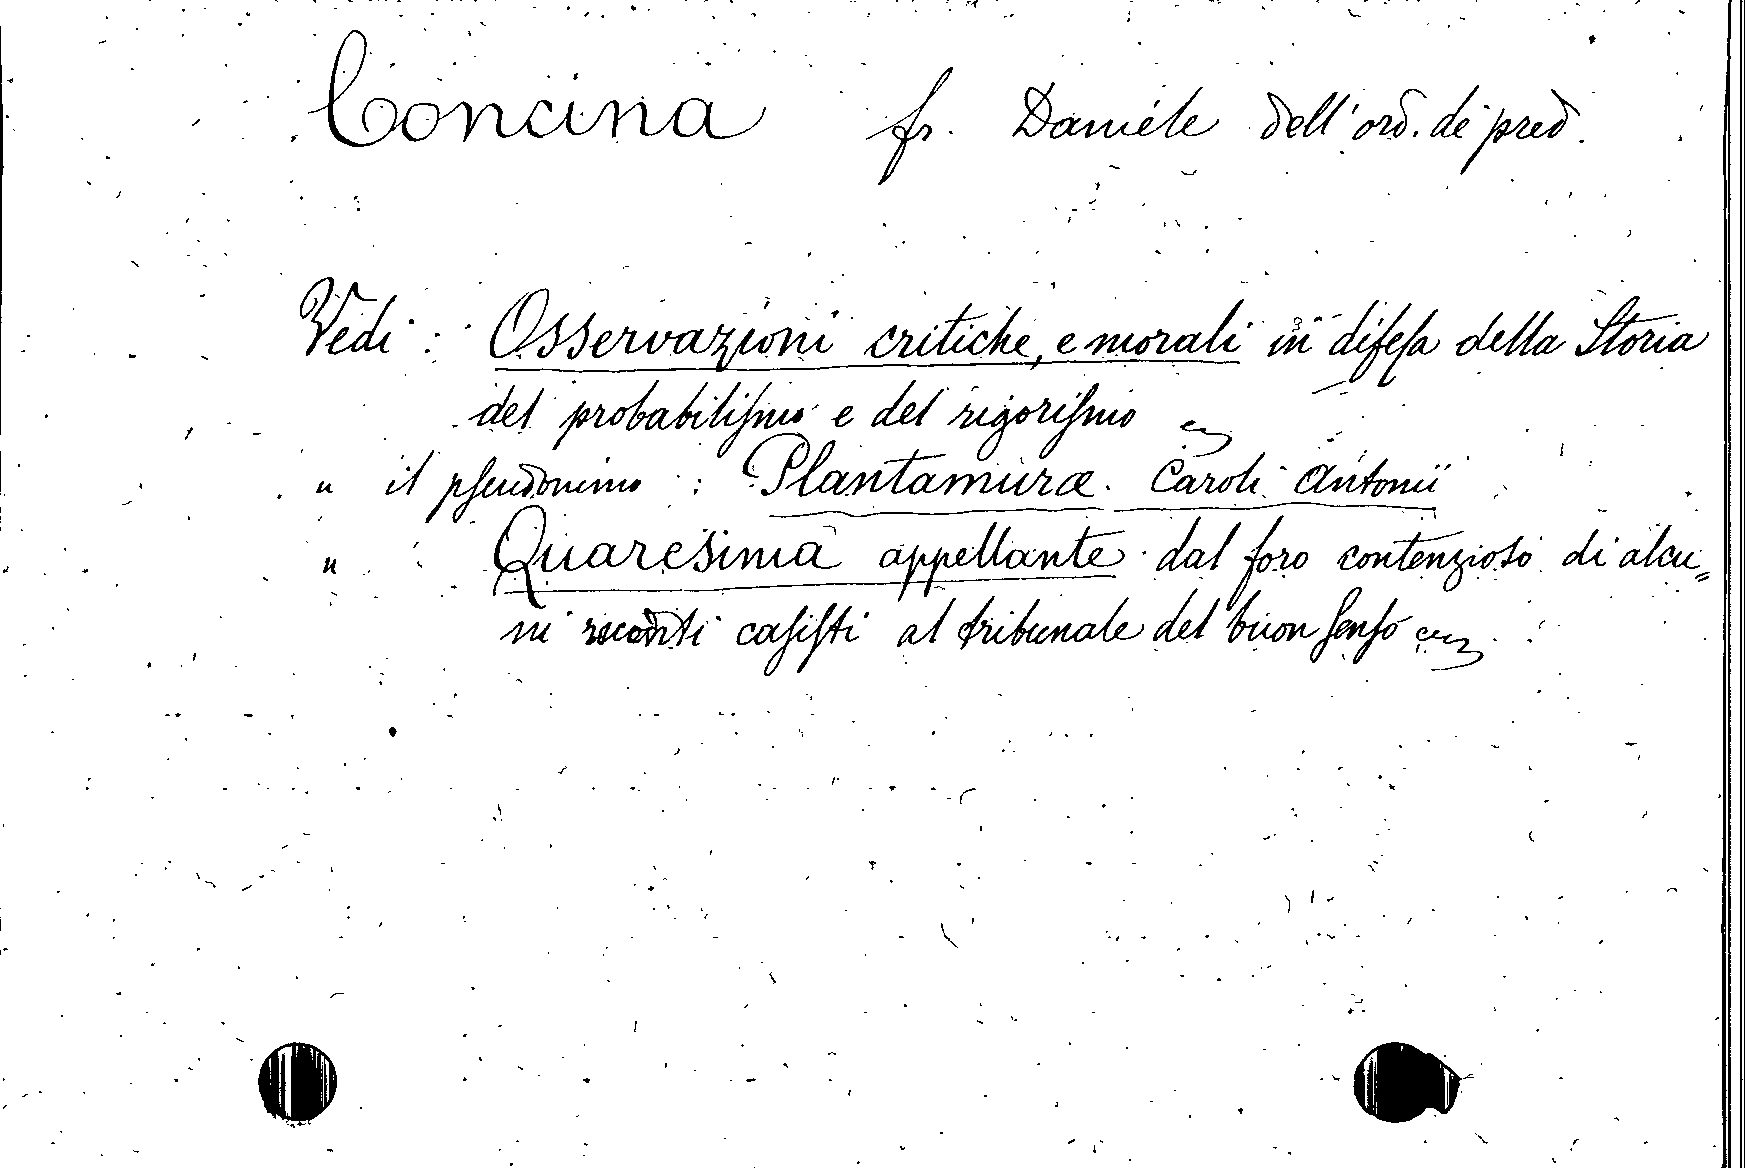 Concina fr. Daniele dell'ord. de pred.
Vedi: Osservazioni critiche, e morali in difeſa della Storia
del probabiliſmo e del rigoriſmo
" il pſeudonimo: Plantamuræ Caroli Antonii
" Quaresima appellante dal foro contenzioso di alcu=
ni recenti caſiſti al tribunale del buon ſenſo